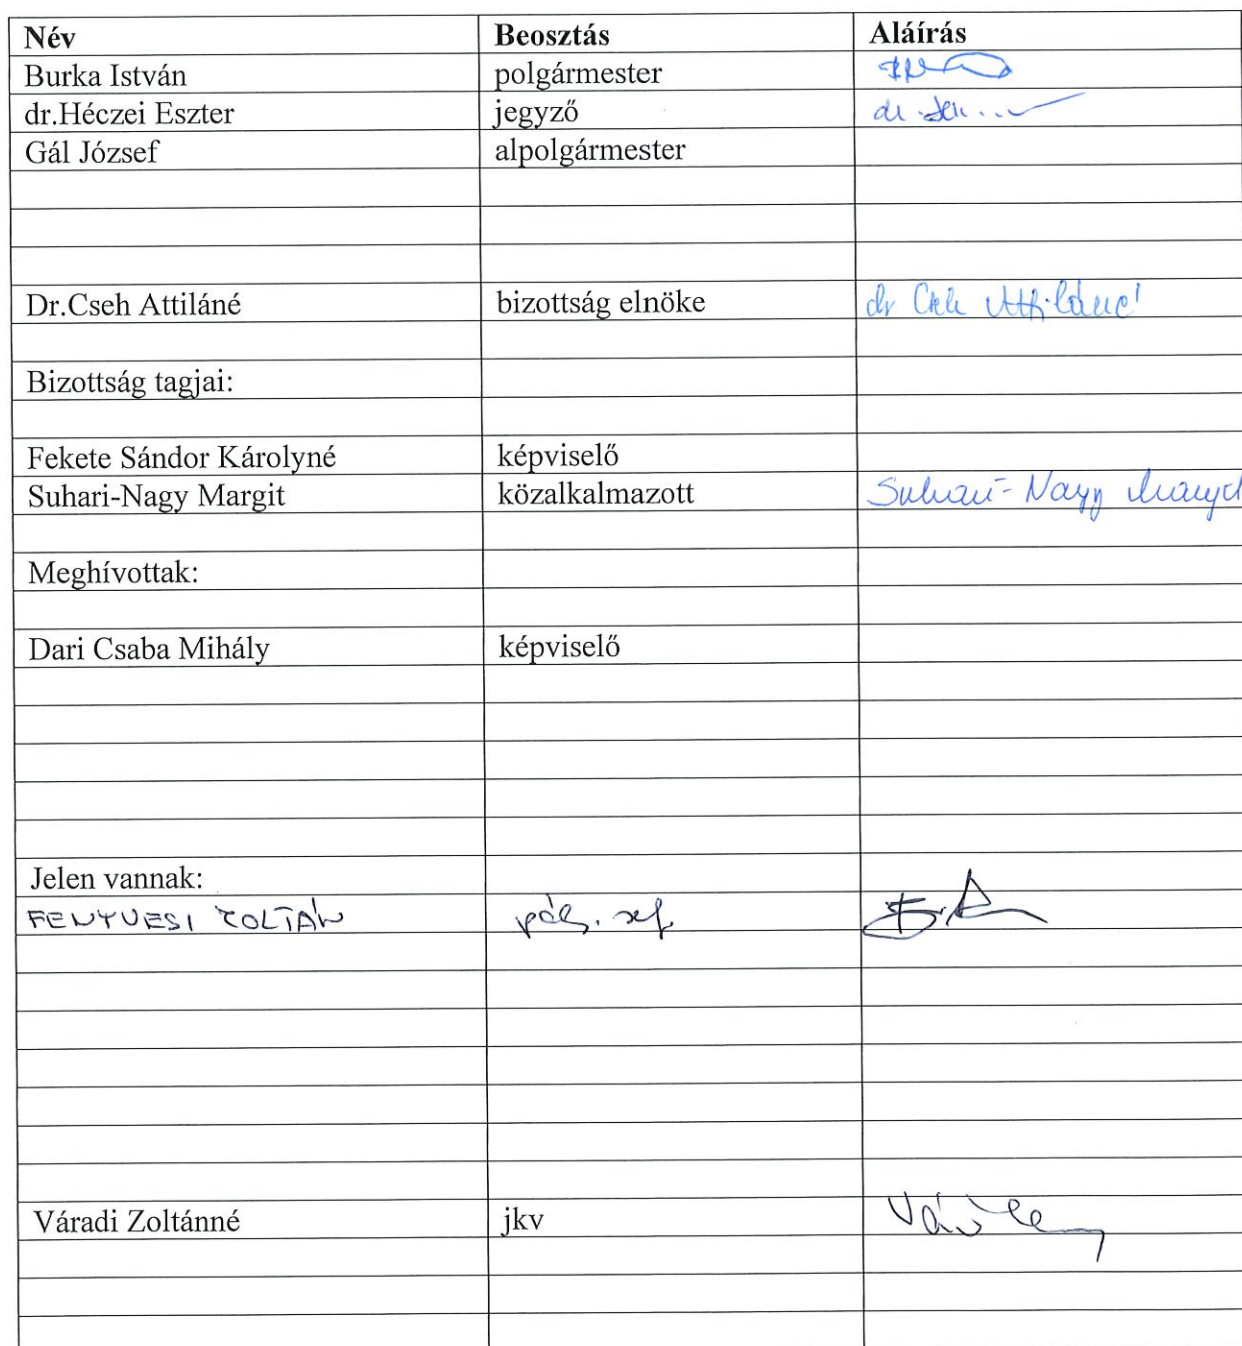 Név Beosztás Aláírás
Burka István polgármester
dr.Héczei Eszter jegyző
Gál József alpolgármester
Dr.Cseh Attiláné bizottság elnöke dr Cseh Attiláné
Bizottság tagjai:
Fekete Sándor Károlyné képviselő
Suhari-Nagy Margit közalkalmazott Suhari-Nagy Margit
Meghívottak:
Dari Csaba Mihály képviselő
Jelen vannak:
FENYVESI ZOLTÁN
Váradi Zoltánné jkv